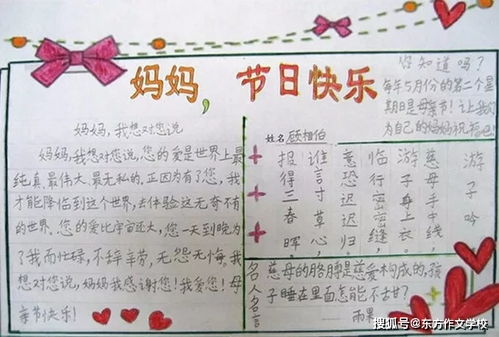 妈妈，节日快乐
你知道吗？
每年5月份的第二个星
期日是母亲节！让我们
为自己的妈妈祝福吧
妈妈，我想对您说
妈妈，我想对您说，您的爱是世界上最
纯真、最伟大、最无私的。正因为有了您，我
才能降临到这个世界，去体验这无奇不有
的世界。您的爱比宇宙还大，您一天到晚为
了我而忙碌，不辞辛劳，无怨无悔。我
想对您说，妈妈我感谢您！我爱您！母
亲节快乐！
姓名 顾相伯
游子吟
慈母手中线，
游子身上衣。
临行密密缝，
意恐迟迟归。
谁言寸草心，
报得三春晖。
名人名言
慈母的胳膊是慈爱构成的，孩
子睡在里面怎能不甜？
雨果
搜狐号@东方作文学校